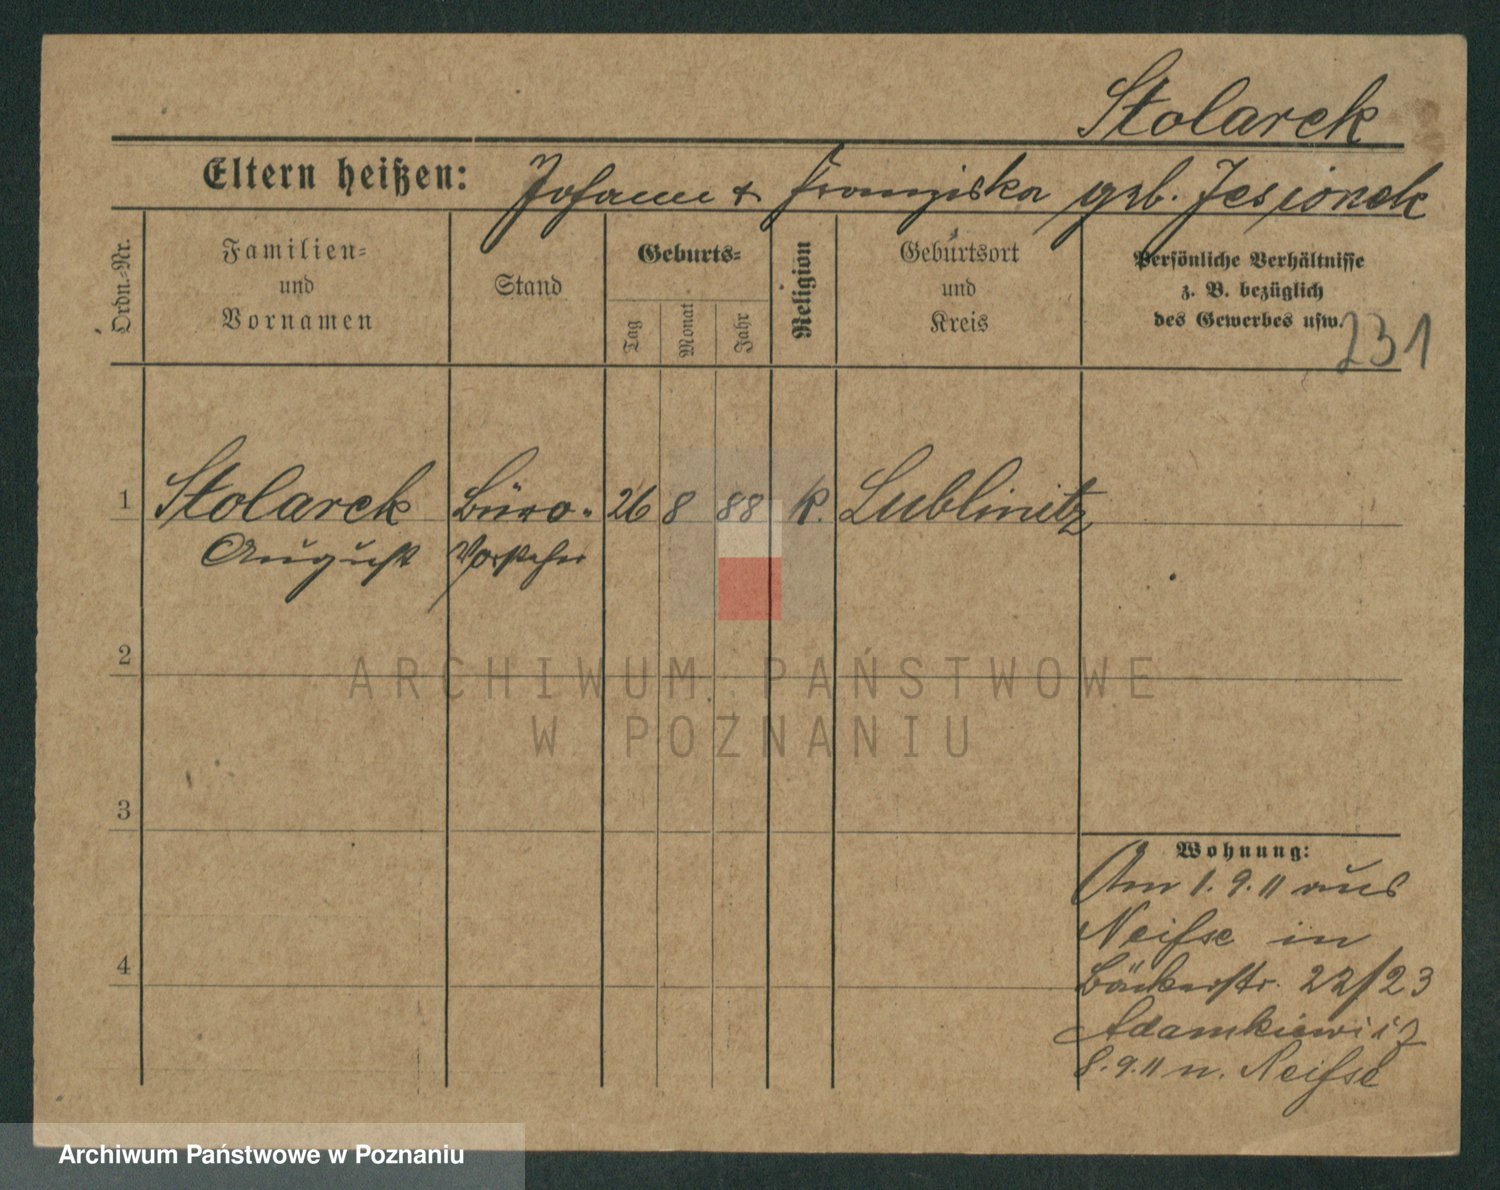 Stolarek
Eltern heißen: Johann & Franziska geb. Jesionek
Ordn.-Nr.
Familien-
und
Vornamen
Stand
Geburts-
Tag
Monat
Jahr
Religion
Geburtsort
und
Kreis
Persönliche Verhältnisse
z. B. bezüglich
des Gewerbes usw.
231
1 Stolarek Büro- 26 8 88 k. Lublinitz
August Vorsteher
2
ARCHIWUM PAŃSTWOWE
W POZNANIU
3
Wohnung:
Am 1.9.11 aus
Neisse in
4
Bäckerstr. 22/23
Adamkiewicz
8.9.11 n. Neisse
Archiwum Państwowe w Poznaniu